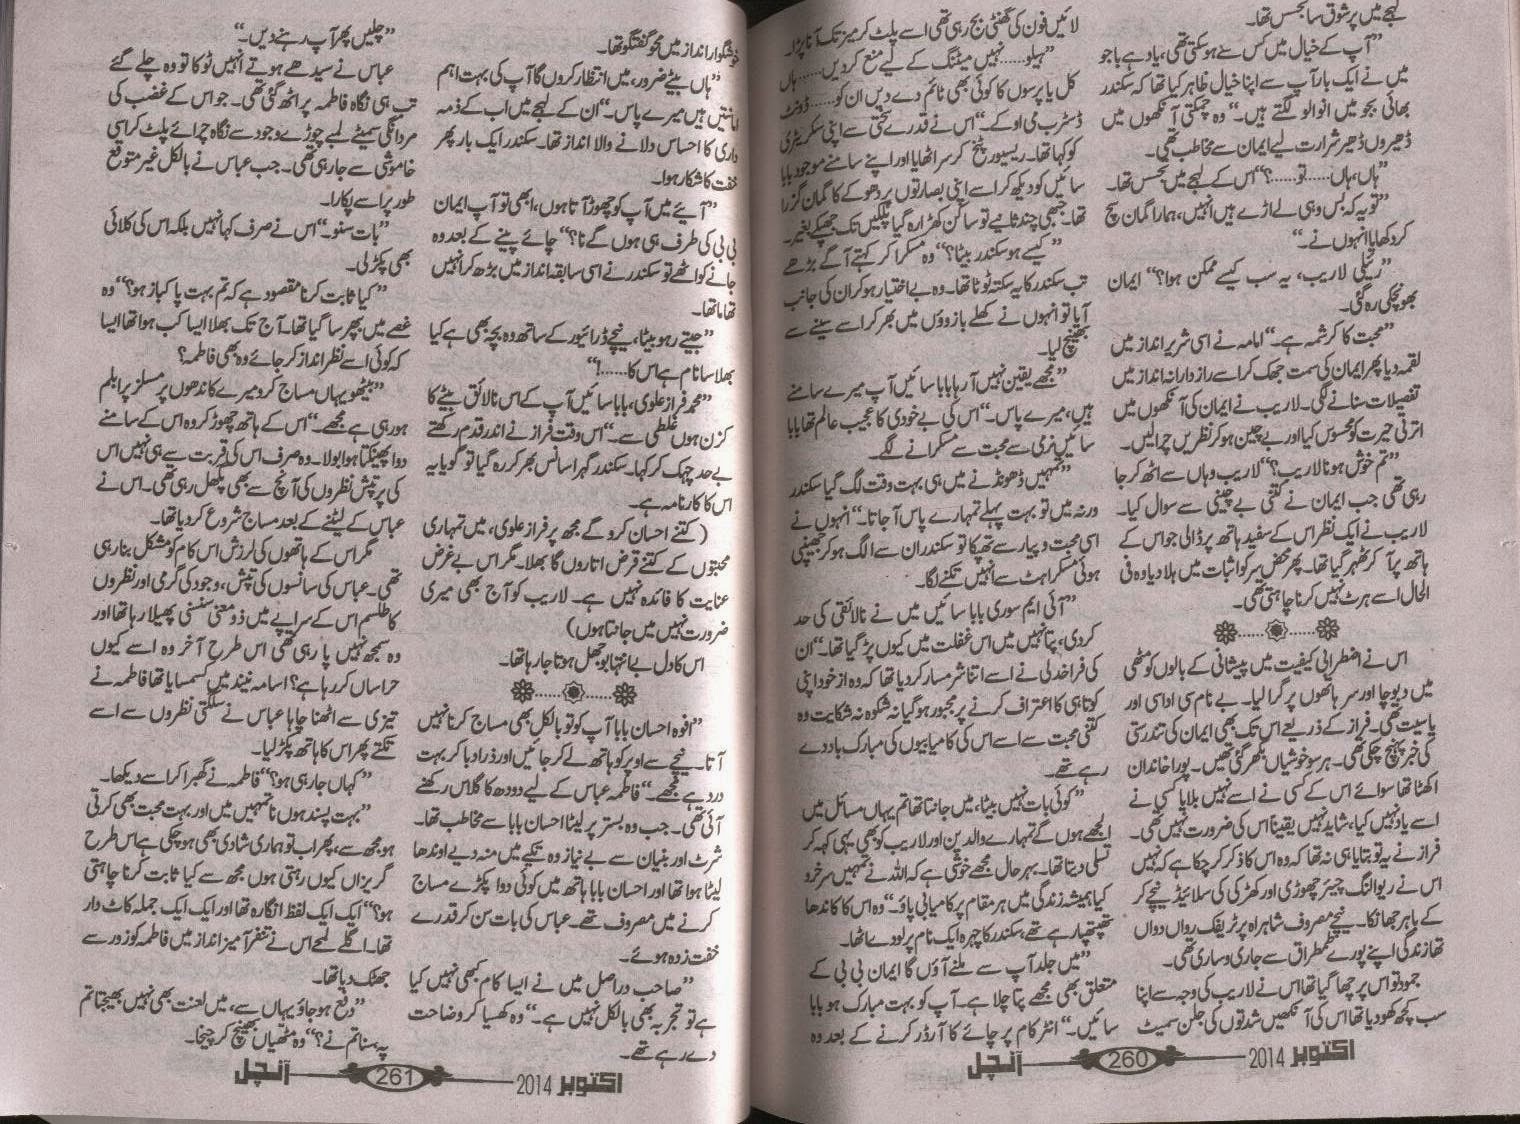 لہجے میں پر شوق سا تجسس تھا۔
”آپ کے خیال میں کس سے ہوسکتی تھی، یاد ہے باجو
میں نے ایک بار آپ سے اپنا خیال ظاہر کیا تھا کہ سکندر
بھائی بجو میں انوالو لگتے ہیں۔“ وہ چمکتی آنکھوں میں
ڈھیروں ڈھیر شرارت لیے ایمان سے مخاطب تھی۔
”ہاں، ہاں......تو......؟“ اس کے لہجے میں تجسس تھا۔
”تو یہ کہ بس وہی لے اڑے ہیں انہیں، ہمارا گمان سچ
کر دکھایا انہوں نے۔“
”رئیلی لاریب، یہ سب کیسے ممکن ہوا؟“ ایمان
بھونچکی رہ گئی۔
”محبت کا کرشمہ ہے۔“ امامہ نے اسی شریر انداز میں
لقمہ دیا پھر ایمان کی سمت جھک کر اسے راز دارانہ انداز میں
تفصیلات سنانے لگی۔ لاریب نے ایمان کی آنکھوں میں
اترتی حیرت کو محسوس کیا اور بے چین ہو کر نظریں چرالیں۔
”تم خوش ہو نا لاریب؟“ لاریب وہاں سے اٹھ کر جا
رہی تھی جب ایمان نے کتنی بے چینی سے سوال کیا۔
لاریب نے ایک نظر اس کے سفید ہاتھ پر ڈالی جو اس کے
ہاتھ پر آ کر ٹھہر گیا تھا۔ پھر محض سر کو اثبات میں ہلا دیا وہ فی
الحال اسے ہرٹ نہیں کرنا چاہتی تھی۔
اس نے اضطرابی کیفیت میں پیشانی کے بالوں کو مٹھی
میں دبوچا اور سر ہاتھوں پر گرا لیا۔ بے نام سی اداسی اور
یاسیت تھی۔ فراز کے ذریعے اس تک بھی ایمان کی تندرستی
کی خبر پہنچ چکی تھی۔ ہر سو خوشیاں بکھر گئی تھیں۔ پورا خاندان
اکٹھا تھا سوائے اس کے کسی نے اسے نہیں بلایا کسی نے
اسے یاد نہیں کیا، شاید نہیں یقیناً اس کی ضرورت نہیں تھی۔
فراز نے یہ تو بتایا ہی نہ تھا کہ وہ اس کا ذکر کر چکا ہے کہ نہیں
اس نے ریوالنگ چیئر چھوڑی اور کھڑکی کی سلائیڈ نیچے کر
کے باہر جھانکا۔ نیچے مصروف شاہراہ پر ٹریفک رواں دواں
تھا زندگی اپنے پورے طمطراق سے جاری و ساری تھی۔
جمود تو اس پر چھا گیا تھا اس نے لاریب کی وجہ سے اپنا
سب کچھ کھو دیا تھا اس کی آنکھیں شدتوں کی جلن سمیٹ
لائیں فون کی گھنٹی بج رہی تھی اسے پلٹ کر میز تک آنا پڑا۔
”ہیلو......نہیں میٹنگ کے لیے منع کر دیں......ہاں
کل یا پرسوں کا کوئی بھی ٹائم دے دیں ان کو......ڈونٹ
ڈسٹرب می اوکے۔“ اس نے قدرے سختی سے اپنی سکریٹری
کو کہا تھا۔ ریسیور پٹخ کر سر اٹھایا اور اپنے سامنے موجود بابا
سائیں کو دیکھ کر اسے اپنی بصارتوں پر دھوکے کا گمان گزرا
تھا۔ جبھی چند ثانیے تو ساکن کھڑا رہ گیا پلکیں تک جھپکے بغیر۔
”کیسے ہو سکندر بیٹا؟“ وہ مسکرا کر کہتے آگے بڑھے
تب سکندر کا یہ سکتہ ٹوٹا تھا۔ وہ بے اختیار ہو کر ان کی جانب
آیا تو انہوں نے کھلے بازوؤں میں بھر کر اسے سینے سے
بھینچ لیا۔
”مجھے یقین نہیں آرہا بابا سائیں آپ میرے سامنے
ہیں، میرے پاس۔“ اس کی بے خودی کا عجیب عالم تھا بابا
سائیں نرمی سے محبت سے مسکرانے لگے۔
”تمہیں ڈھونڈنے میں ہی بہت وقت لگ گیا سکندر
ورنہ میں تو بہت پہلے تمہارے پاس آجاتا۔“ انہوں نے
اسی محبت و پیار سے تھپکا تو سکندر ان سے الگ ہو کر جھینپی
ہوئی مسکراہٹ سے انہیں تکنے لگا۔
”آئی ایم سوری بابا سائیں میں نے نالائقی کی حد
کردی، پتا نہیں میں اس غفلت میں کیوں پڑ گیا تھا۔“ ان
کی فراخدلی نے اسے اتنا شرمسار کر دیا تھا کہ وہ از خود اپنی
کوتاہی کا اعتراف کرنے پر مجبور ہو گیا نہ شکوہ نہ شکایت وہ
کتنی محبت سے اسے اس کی کامیابیوں کی مبارک باد دے
رہے تھے۔
”کوئی بات نہیں بیٹا، میں جانتا تھا تم یہاں مسائل میں
الجھے ہوں گے تمہارے والدین اور لاریب کو بھی یہی کہہ کر
تسلی دیتا تھا۔ بہرحال مجھے خوشی ہے کہ اللہ نے تمہیں سرخرو
کیا ہمیشہ زندگی میں ہر مقام پر کامیابی پاؤ۔“ وہ اس کا کاندھا
تھپتھپا رہے تھے، سکندر کا چہرہ ایک نام پر لو دے اٹھا۔
”میں جلد آپ سے ملنے آؤں گا ایمان بی بی کے
متعلق بھی مجھے پتا چلا ہے۔ آپ کو بہت مبارک ہو بابا
سائیں۔“ انٹرکام پر چائے کا آرڈر کرنے کے بعد وہ
اکتوبر 2014 260 آنچل
خوشگوار انداز میں محو گفتگو تھا۔
”ہاں بیٹے ضرور، میں انتظار کروں گا آپ کی بہت اہم
امانتیں ہیں میرے پاس۔“ ان کے لہجے میں اب کے ذمہ
داری کا احساس دلانے والا انداز تھا۔ سکندر ایک بار پھر
خفت کا شکار ہوا۔
”آیئے میں آپ کو چھوڑ آتا ہوں، ابھی تو آپ ایمان
بی بی کی طرف ہی ہوں گے نا؟“ چائے پینے کے بعد وہ
جانے کو اٹھے تو سکندر نے اسی سابقہ انداز میں بڑھ کر انہیں
تھاما تھا۔
”جیتے رہو بیٹا، نیچے ڈرائیور کے ساتھ وہ بچہ بھی ہے کیا
بھلا سا نام ہے اس کا......!“
”محمد فراز علوی، بابا سائیں آپ کے اس نالائق بیٹے کا
کزن ہوں غلطی سے۔“ اس وقت فراز نے اندر قدم رکھتے
بے حد چہک کر کہا۔ سکندر گہرا سانس بھر کر رہ گیا تو گویا یہ
اس کا کارنامہ ہے۔
(کتنے احسان کرو گے مجھ پر فراز علوی، میں تمہاری
محبتوں کے کتنے قرض اتاروں گا بھلا۔ مگر اس بے غرض
عنایت کا فائدہ نہیں ہے۔ لاریب کو آج بھی میری
ضرورت نہیں میں جانتا ہوں)
اس کا دل بے انتہا بوجھل ہوتا جا رہا تھا۔
”افوہ احسان بابا آپ کو تو بالکل بھی مساج کرنا نہیں
آتا۔ نیچے سے اوپر کو ہاتھ لے کر جائیں اور ذرا دبا کر بہت
درد ہے مجھے۔“ فاطمہ عباس کے لیے دودھ کا گلاس رکھنے
آئی تھی۔ جب وہ بستر پر لیٹا احسان بابا سے مخاطب تھا۔
شرٹ اور بنیان سے بے نیاز وہ تکیے میں منہ دیے اوندھا
لیٹا ہوا تھا اور احسان بابا ہاتھ میں کوئی دوا پکڑے مساج
کرنے میں مصروف تھے۔ عباس کی بات سن کر قدرے
خفت زدہ ہوئے۔
”صاحب دراصل میں نے ایسا کام کبھی نہیں کیا
ہے تو تجربہ بھی بالکل نہیں ہے۔“ وہ کھسیا کر وضاحت
دے رہے تھے۔
”چلیں پھر آپ رہنے دیں۔“
عباس نے سیدھے ہوتے انہیں ٹوکا تو وہ چلے گئے
تب ہی نگاہ فاطمہ پر اٹھ گئی تھی۔ جو اس کے غضب کی
مردانگی سمیٹے لمبے چوڑے وجود سے نگاہ چرائے پلٹ کر اسی
خاموشی سے جا رہی تھی۔ جب عباس نے بالکل غیر متوقع
طور پر اسے پکارا۔
”بات سنو۔“ اس نے صرف کہا نہیں بلکہ اس کی کلائی
بھی پکڑ لی۔
”کیا ثابت کرنا مقصود ہے کہ تم بہت پاکباز ہو؟“ وہ
غصے میں بپھر سا گیا تھا۔ آج تک بھلا ایسا کب ہوا تھا ایسا
کہ کوئی اسے نظر انداز کر جائے وہ بھی فاطمہ؟
”بیٹھو یہاں مساج کرو میرے کاندھوں پر مسلز پرابلم
ہو رہی ہے مجھے۔“ اس کے ہاتھ چھوڑ کر وہ اس کے سامنے
دوا پھینکتا ہوا بولا۔ وہ صرف اس کی قربت سے ہی نہیں اس
کی پر تپش نظروں کی آنچ سے بھی پگھل رہی تھی۔ اس نے
عباس کے لیٹنے کے بعد مساج شروع کر دیا تھا۔
مگر اس کے ہاتھوں کی لرزش اس کام کو مشکل بنا رہی
تھی۔ عباس کی سانسوں کی تپش، وجود کی گرمی اور نظروں
کا طلسم اس کے سراپے میں ذو معنی سنسنی پھیلا رہا تھا اور
وہ سمجھ نہیں پا رہی تھی اس طرح آخر وہ اسے کیوں
حراساں کر رہا ہے؟ اسامہ نیند میں کسمسایا تھا فاطمہ نے
تیزی سے اٹھنا چاہا عباس نے سلگتی نظروں سے اسے
تکتے پھر اس کا ہاتھ پکڑ لیا۔
”کہاں جا رہی ہو؟“ فاطمہ نے گھبرا کر اسے دیکھا۔
”بہت پسند ہوں نا تمہیں میں اور بہت محبت بھی کرتی
ہو مجھ سے، پھر اب تو ہماری شادی بھی ہو چکی ہے اس طرح
گریزاں کیوں رہتی ہوں مجھ سے کیا ثابت کرنا چاہتی
ہو؟“ ایک ایک لفظ انگارہ تھا اور ایک ایک جملہ کاٹ دار
تھا۔ اگلے لمحے اس نے تنفر آمیز انداز میں فاطمہ کو زور سے
جھٹک دیا تھا۔
”دفع ہو جاؤ یہاں سے، میں لعنت بھی نہیں بھیجتا تم
پہ سنا تم نے؟“ وہ مٹھیاں بھینچ کر چیخا۔
اکتوبر 2014 261 آنچل